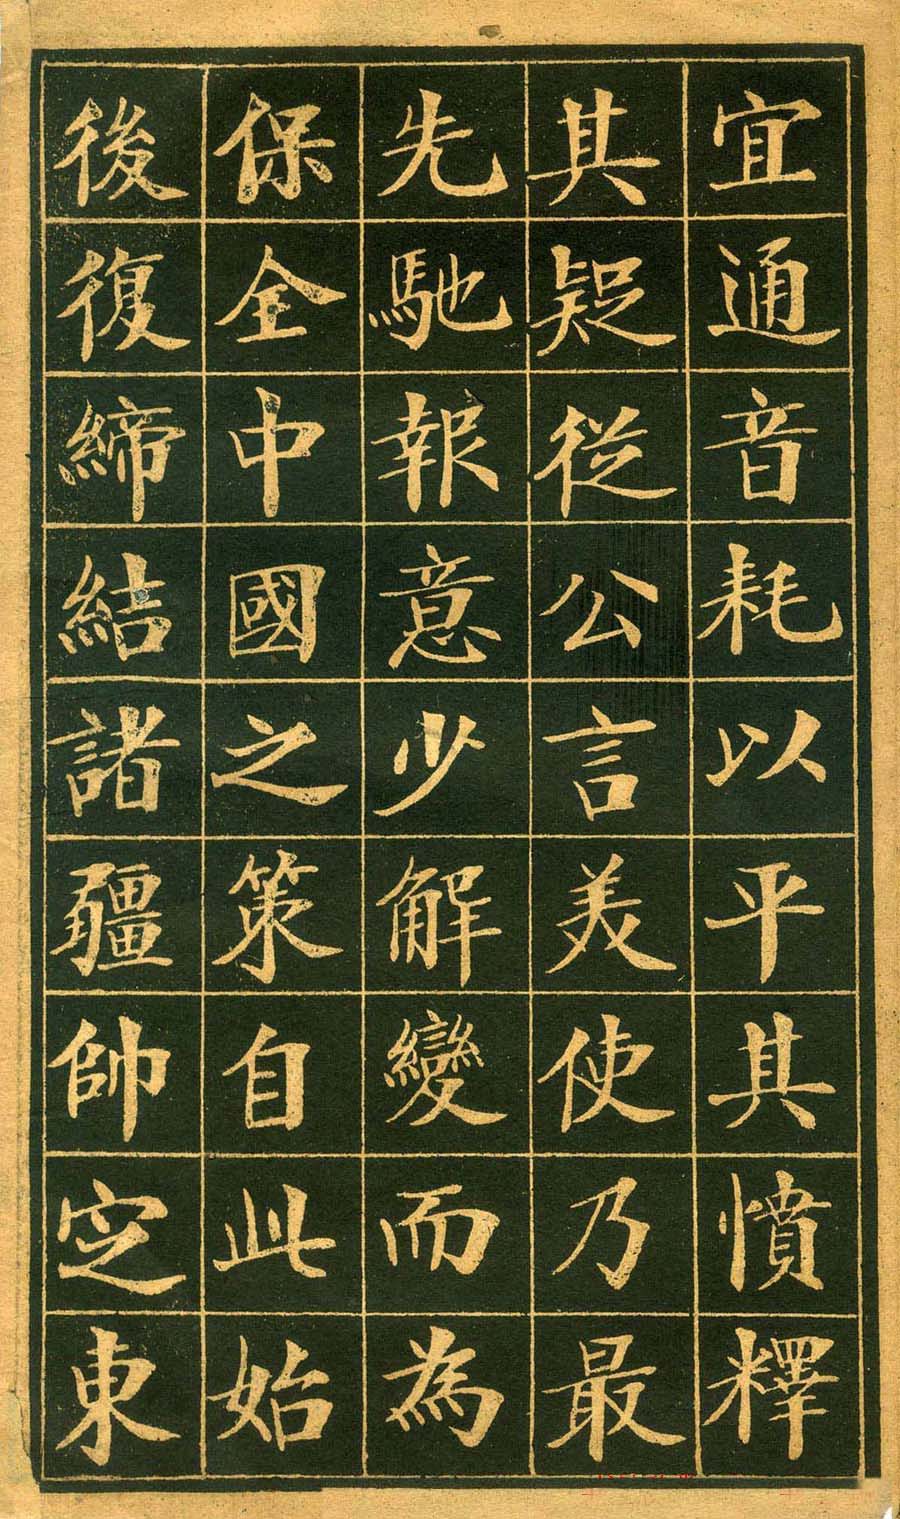 宜通音耗以平其憤釋
其疑從公言美使乃最
先馳報意少解變而為
保全中國之策自此始
後復締結諸疆帥定東